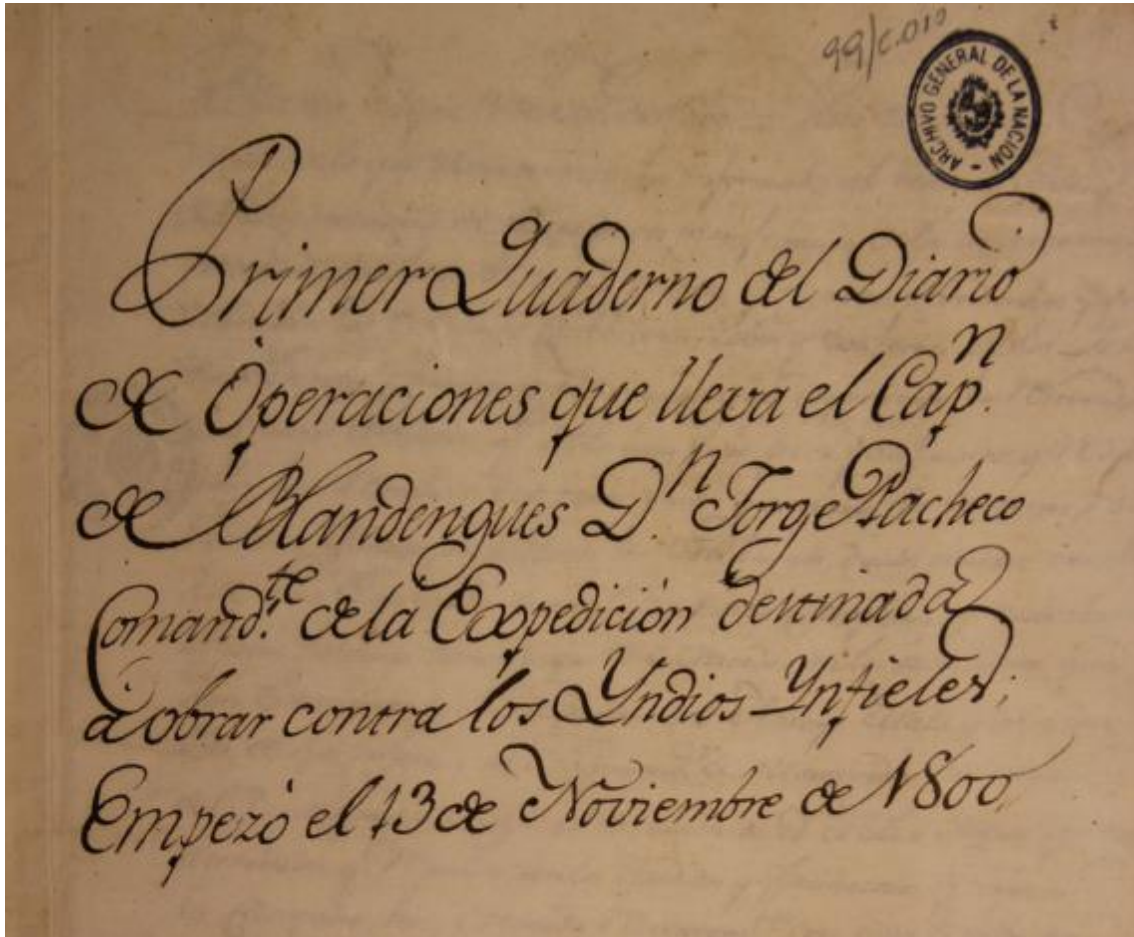 99/C.010
ARCHIVO GENERAL DE LA NACION
Primer Quaderno del Diario
de Operaciones que lleva el Cap.n
de Blandengues D.n Jorge Pacheco
Comand.te de la Expedición destinada
á obrar contra los Yndios Ynfieles;
Empezó el 13 de Noviembre de 1800.